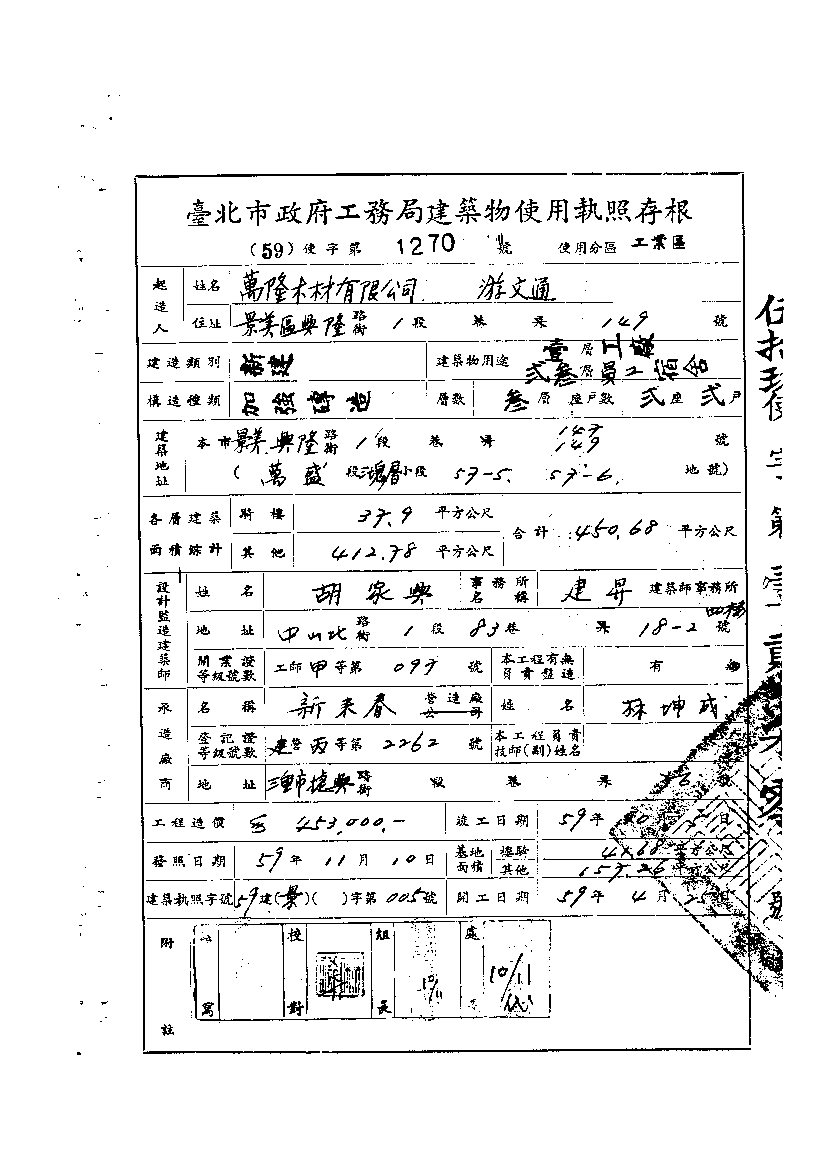 臺北市政府工務局建築物使用執照存根
(59)使字第 1270 號 使用分區 工業區
起造人 姓名 萬隆木材有限公司 游文通
住址 景美區興隆路街 1段 巷 弄 149 號
建造類別 新建 建築物用途 壹層工廠 弍叁層員工宿舍
構造種類 加強磚造 層數 叁層 座戶數 弍座 弍戶
建築地址 本市景美興隆路街 1段 巷 弄 147 149 號
(萬盛段 小段 57-5. 57-6. 地號)
各層建築面積綜計 騎樓 37.9 平方公尺 合計 450.68 平方公尺
其他 412.78 平方公尺
設計監造建築師 姓名 胡家興 事務所名稱 建昇 建築師事務所
地址 中山北路街 1段 83巷 弄 18-2號 四樓
開業證等級號數 工師甲等第 097 號 本工程有無負責監造 有
承造廠商 名稱 新来春 營造廠公司 姓名 林坤成
登記證等級號數 建營丙等第 2262 號 本工程負責技師(副)姓名
地址 三重市捷興路街 段 巷 弄 號
工程造價 453,000.- 竣工日期 59年 日
發照日期 59年 11月 10日 基地面積 騎樓 平方公尺
其他 157.26 平方公尺
建築執照字號 59建(景)( )字第005號 開工日期 59年 4月 25日
附註 寫 校對 組長 處
10/11
10/11